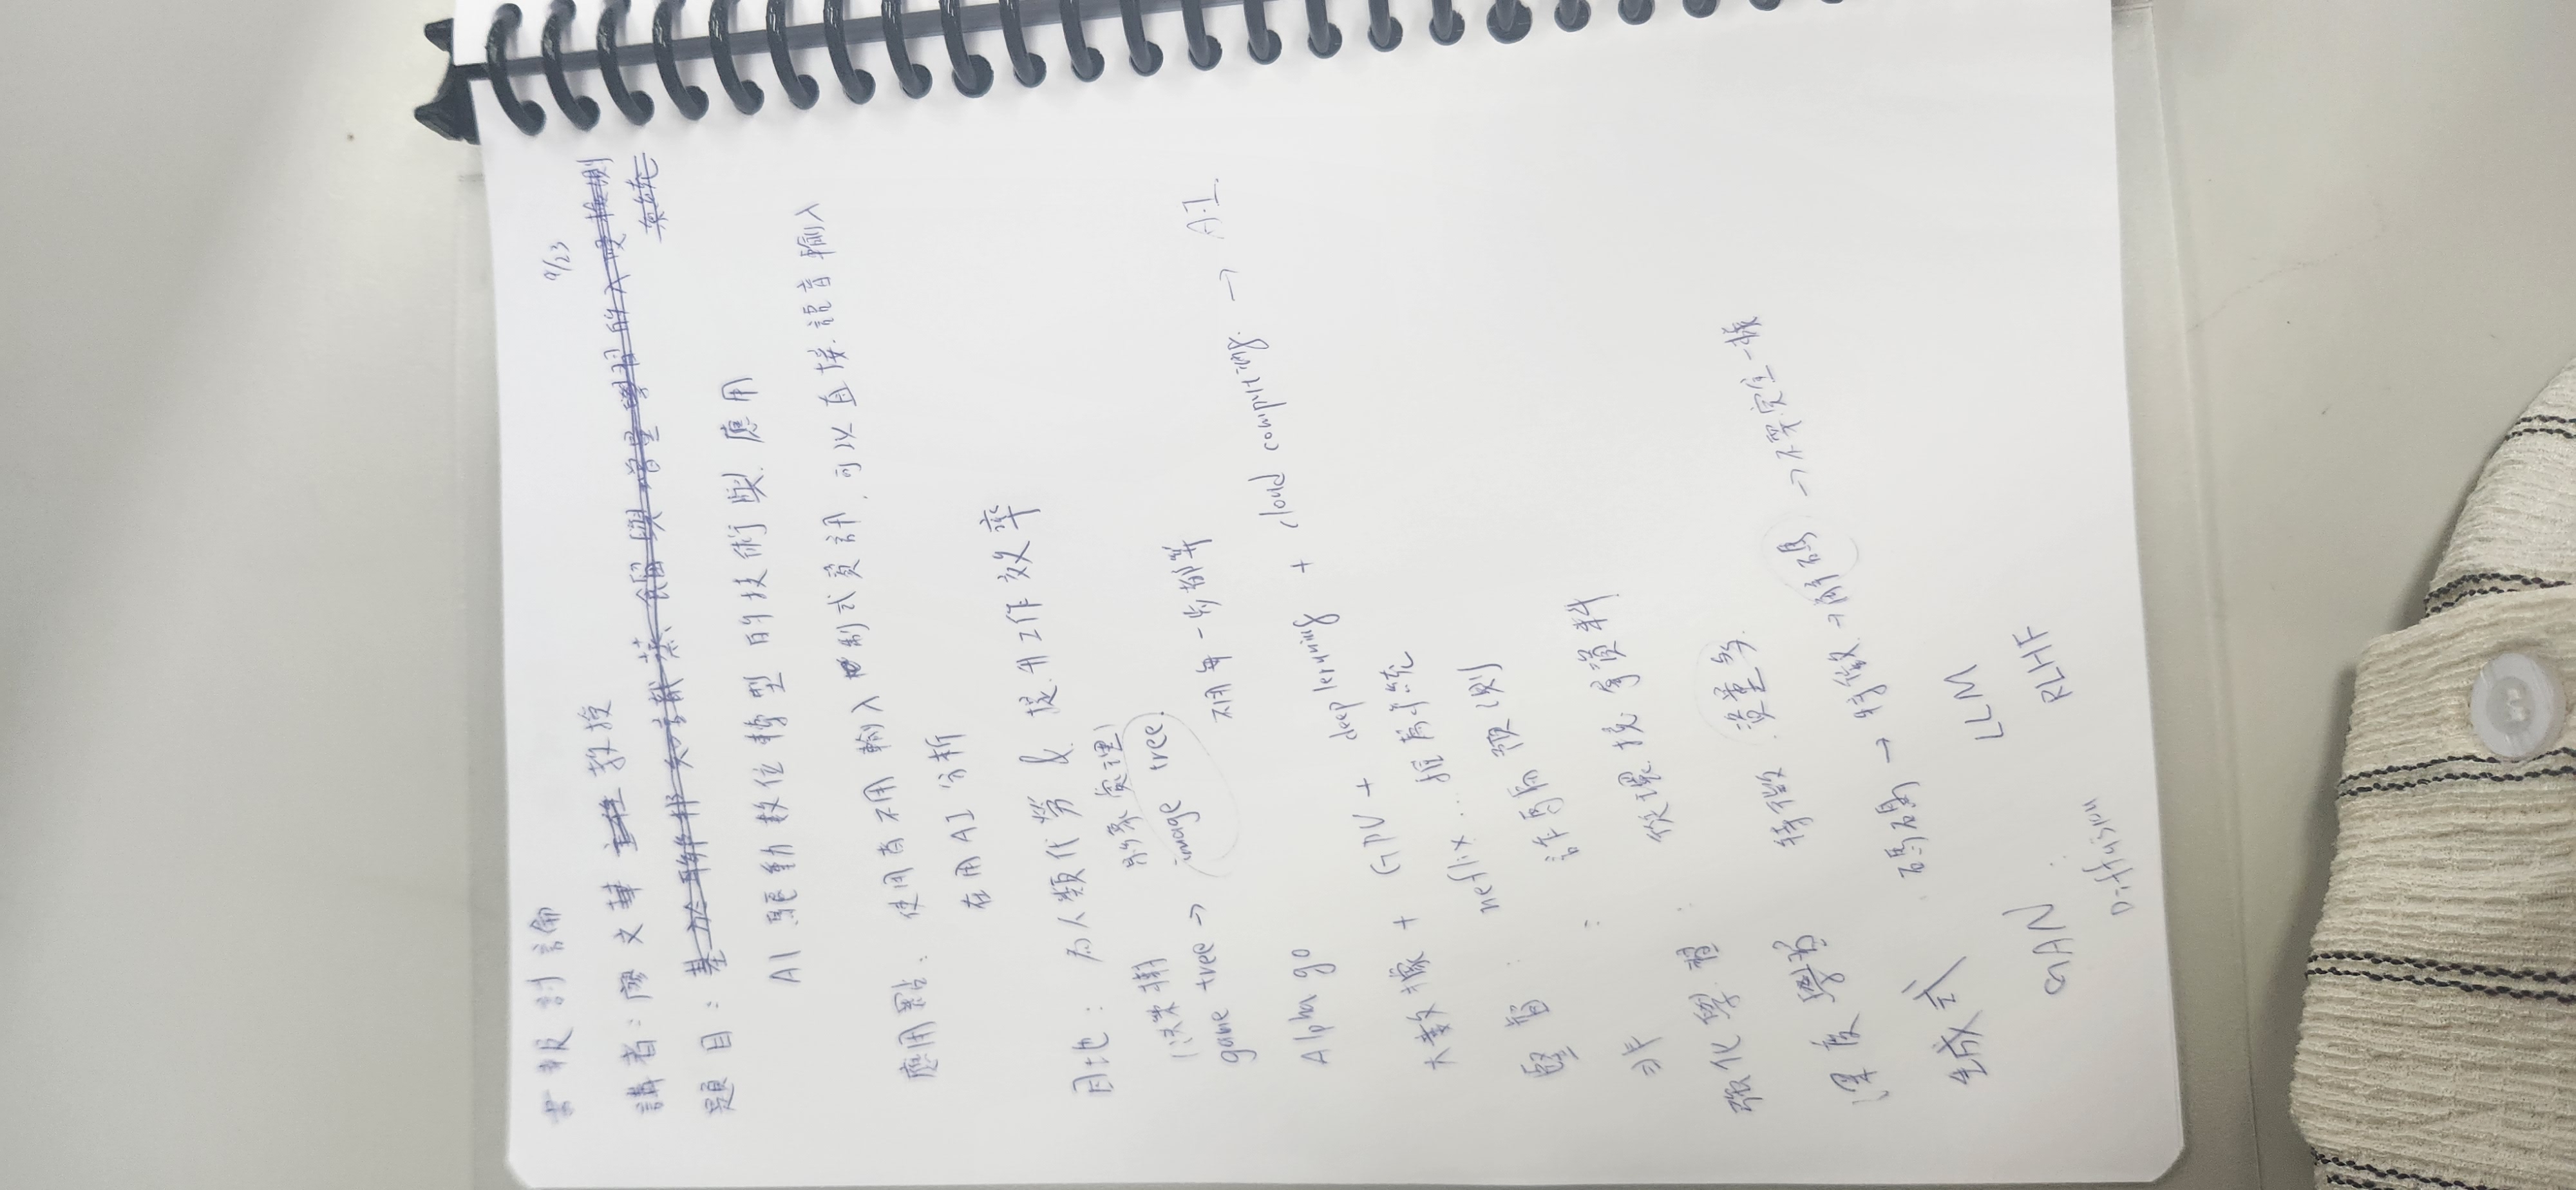 書報討論
9/23
講者：廖文華 主任 教授
題目：基於聯邦知識蒸餾與增量學習的入侵檢測
系統
AI 驅動數位轉型的技術與應用
應用點：使用者不用輸入制式資訊，可以直接語音輸入
在用AI分析
目地：為人類代勞 & 提升工作效率
決策樹 影象處理
game tree → image tree
不用每一步都算
Alpha go
大數據 + GPU + deep lerning + cloud computing → AI
監督：neflix...推薦系統
非：詐騙預測
強化學習：從環境拿資料
深度學習 特徵 資量多
生成式 碼碼 → 特徵 → 解碼 → 不要完全一樣
GAN LLM
Diffusion RLHF